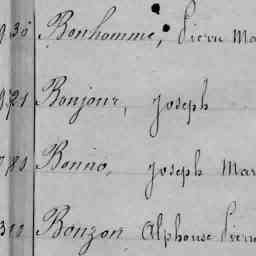 30 Bonhomme, Pierre Ma
921 Bonjour, Joseph
Bonno, Joseph Mar
Bonzon Alphonse Pierre